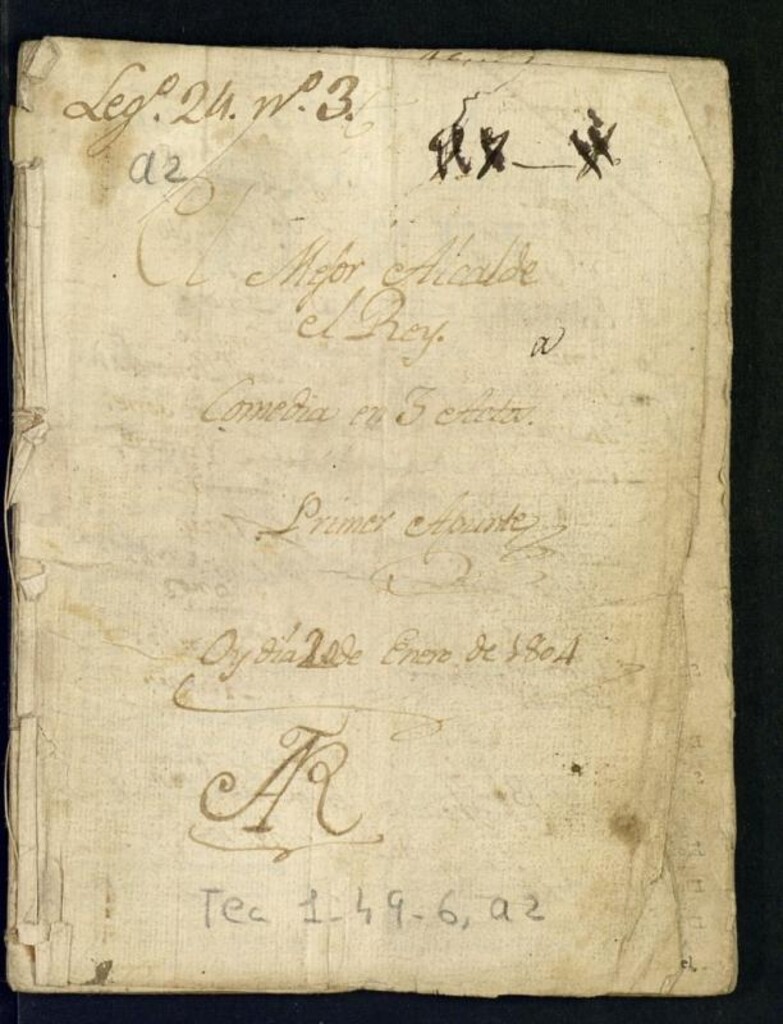 Leg.º 24. nº. 3.
a2
El Mejor Alcalde
el Rey.
a
Comedia en 3 Actos.
Primer Apunte
Oy día 20 de Enero de 1804
AR
Tea 1-49-6, a2